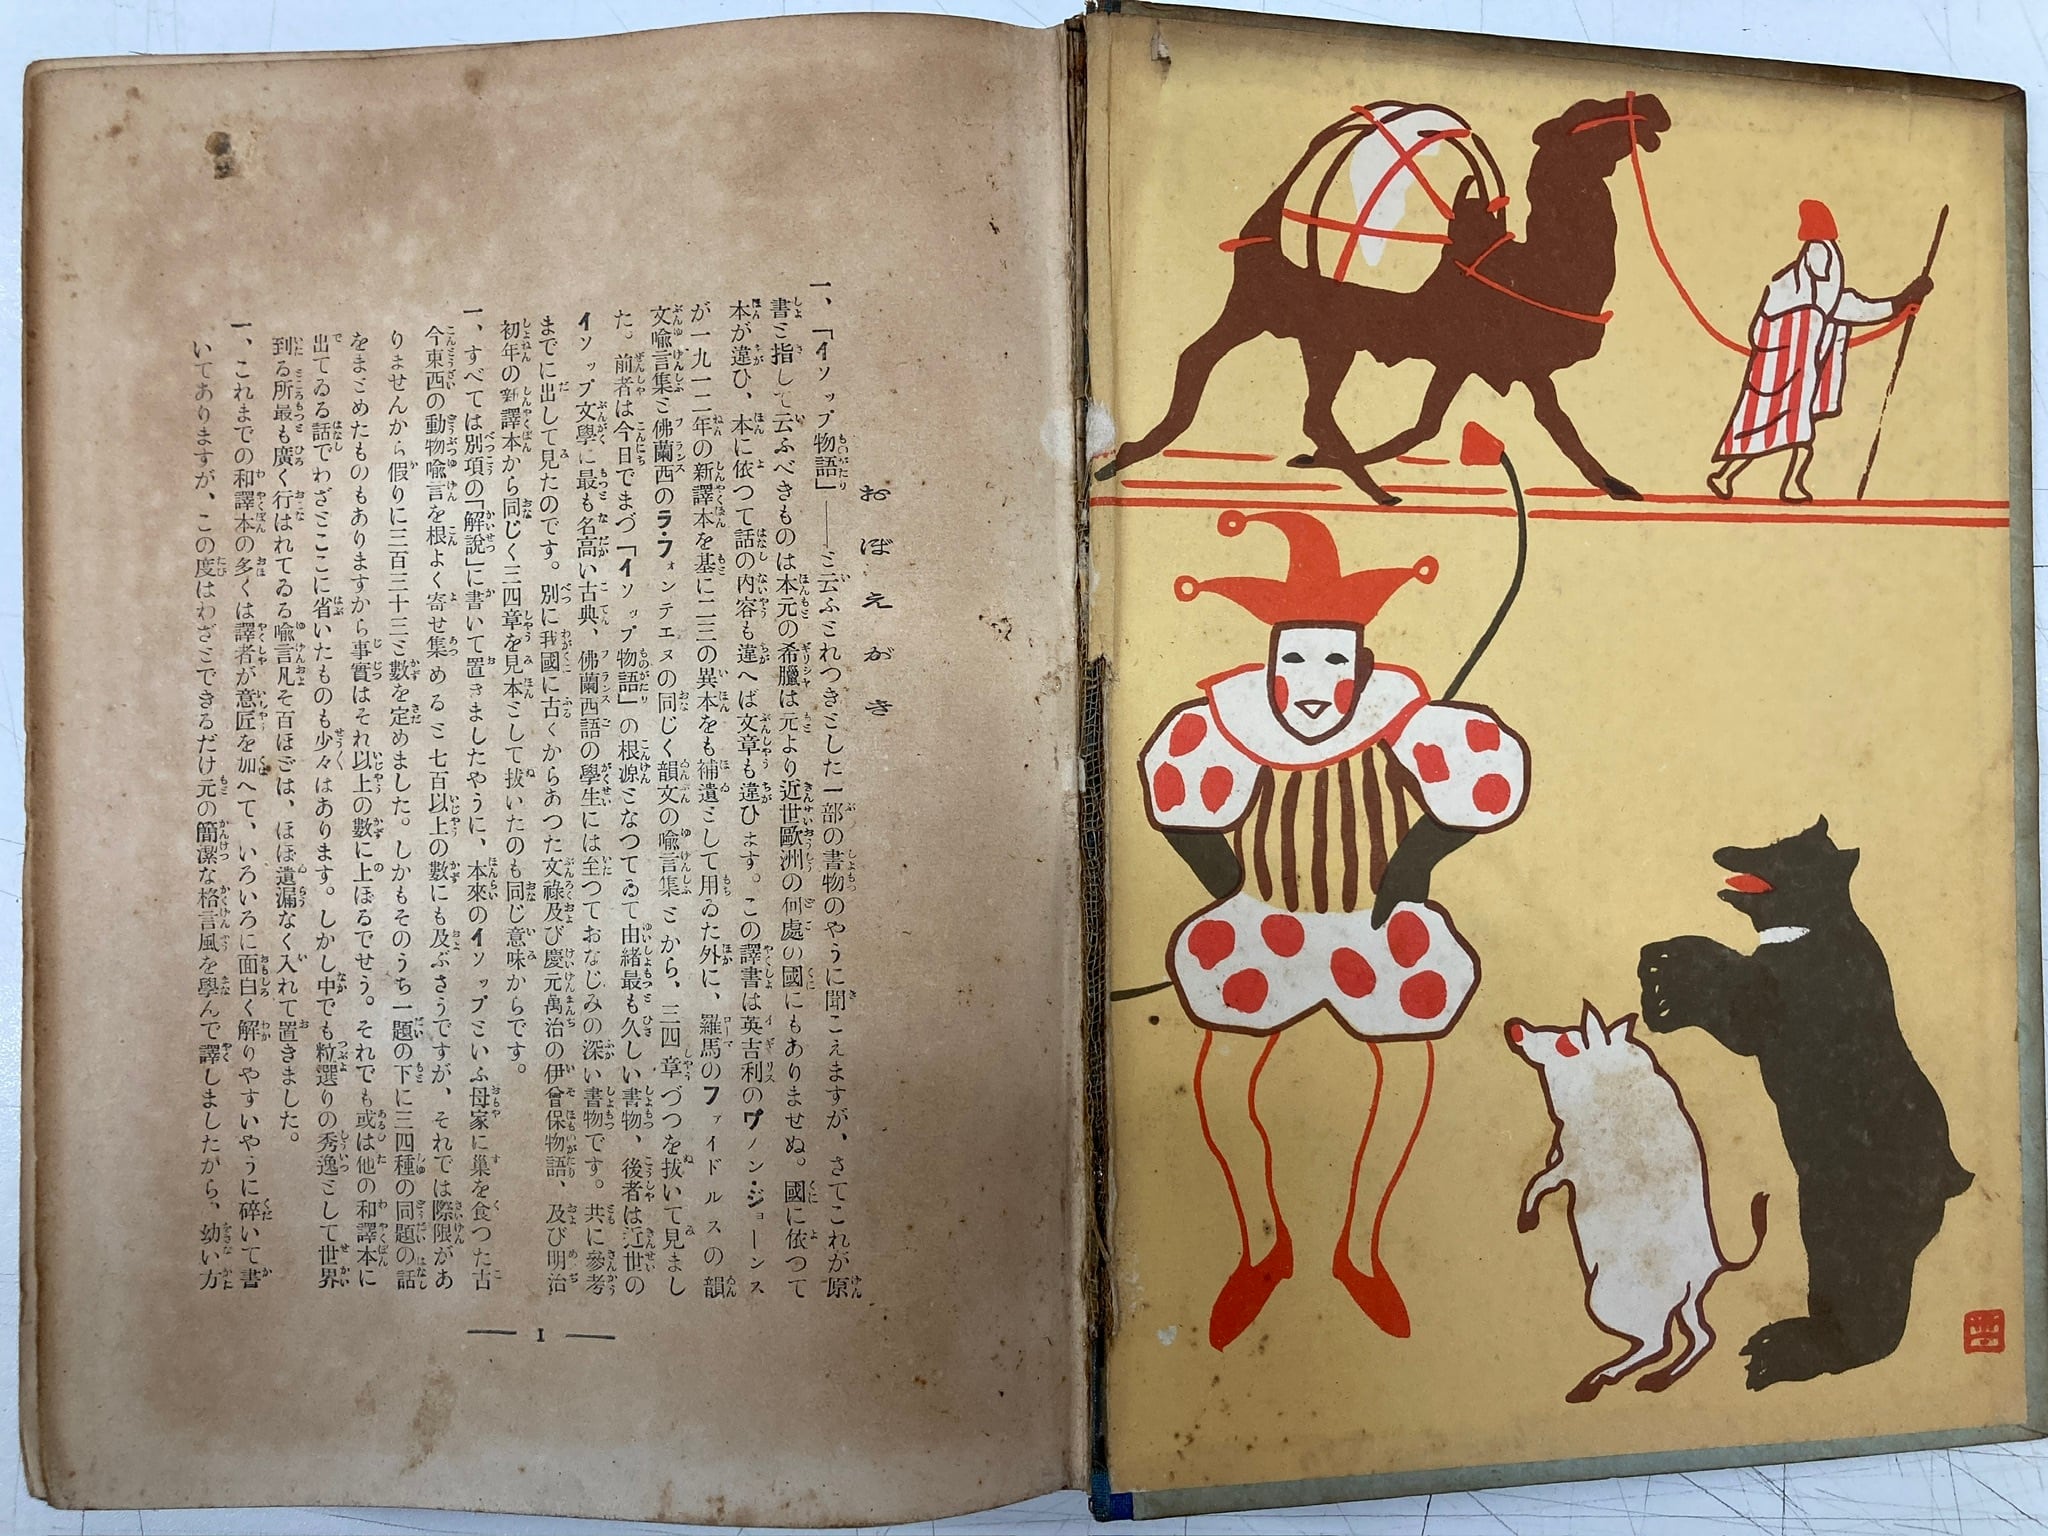 おぼえがき
一、「イソップ物語」——と云ふとれつきとした一部の書物のやうに聞こえますが、さてこれが原
書と指して云ふべきものは本元の希臘は元より近世歐洲の何處の國にもありませぬ。國に依つて
本が違ひ、本に依つて話の内容も違へば文章も違ひます。この譯書は英吉利のヷノン・ジョーンス
が一九一二年の新譯本を基に二三の異本をも補遺として用ゐた外に、羅馬のファイドルスの韻
文喩言集と佛蘭西のラ・フォンテエヌの同じく韻文の喩言集とから、三四章づつを抜いて見まし
た。前者は今日でまづ「イソップ物語」の根源となつてゐて由緒最も久しい書物、後者は近世の
イソップ文學に最も名高い古典、佛蘭西語の學生には至つておなじみの深い書物です。共に參考
までに出して見たのです。別に我國に古くからあつた文祿及び慶元萬治の伊曾保物語、及び明治
初年の新譯本から同じく三四章を見本として拔いたのも同じ意味からです。
一、すべては別項の「解說」に書いて置きましたやうに、本來のイソップといふ母家に巢を食つた古
今東西の動物喩言を根よく寄せ集めると七百以上の數にも及ぶさうですが、それでは際限があ
りませんから假りに三百三十三と數を定めました。しかもそのうち一題の下に三四種の同題の話
をまとめたものもありますから事實はそれ以上の數に上ぼるでせう。それでも或は他の和譯本に
出てゐる話でわざとここに省いたものも少々はあります。しかし中でも粒選りの秀逸として世界
到る所最も廣く行はれてゐる喩言凡そ百ほどは、ほぼ遺漏なく入れて置きました。
一、これまでの和譯本の多くは譯者が意匠を加へて、いろいろに面白く解りやすいやうに碎いて書
いてありますが、この度はわざとできるだけ元の簡潔な格言風を學んで譯しましたから、幼い方
— 1 —